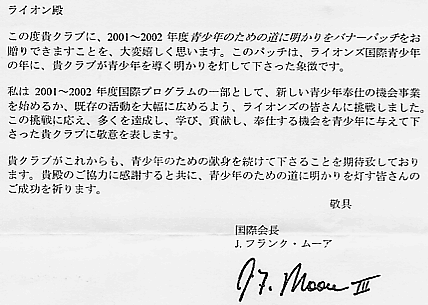 ライオン殿
この度貴クラブに、2001～2002 年度青少年のための道に明かりをバナーパッチをお
贈りできますことを、大変嬉しく思います。このパッチは、ライオンズ国際青少年
の年に、貴クラブが青少年を導く明かりを灯して下さった象徴です。
私は 2001～2002 年度国際プログラムの一部として、新しい青少年奉仕の機会事業
を始めるか、既存の活動を大幅に広めるよう、ライオンズの皆さんに挑戦しました。
この挑戦に応え、多くを達成し、学び、貢献し、奉仕する機会を青少年に与えて下
さった貴クラブに敬意を表します。
貴クラブがこれからも、青少年のための献身を続けて下さることを期待致しており
ます。貴殿のご協力に感謝すると共に、青少年のための道に明かりを灯す皆さんの
ご成功を祈ります。
敬具
国際会長
J. フランク・ムーア
J. F. Moore III